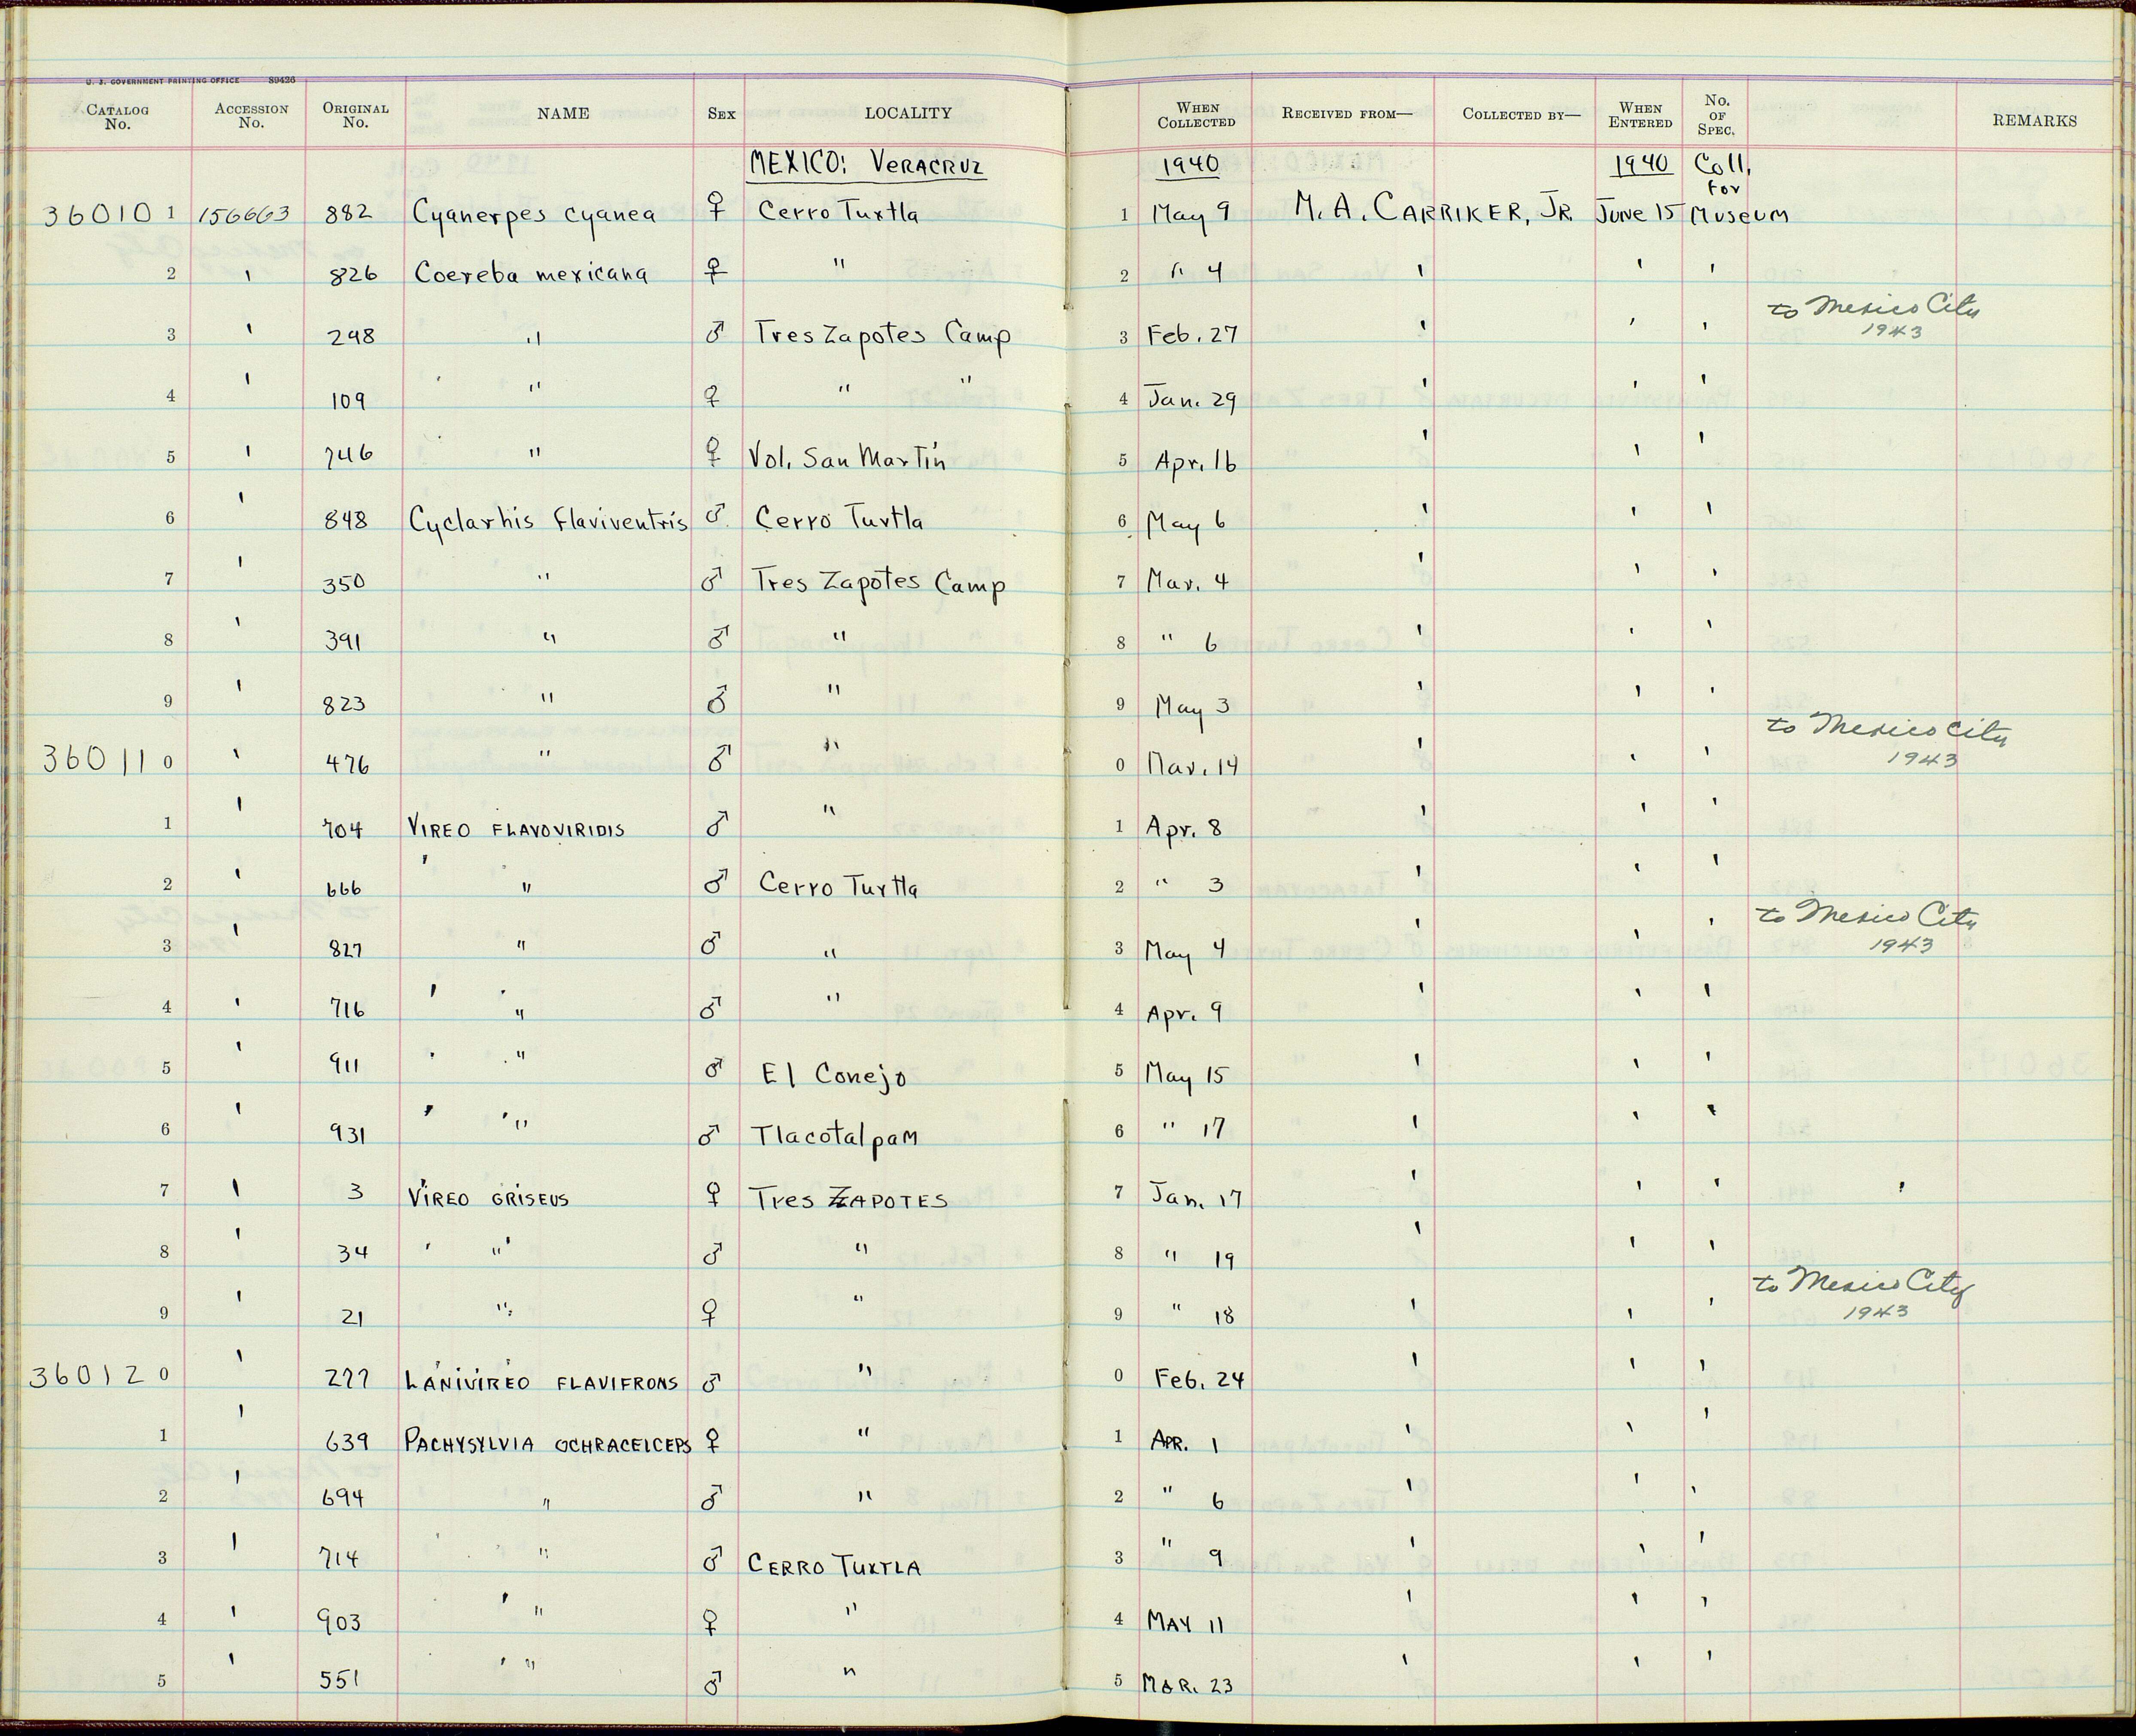 U. S. GOVERNMENT PRINTING OFFICE 89426
CATALOG No. ACCESSION No. ORIGINAL No. NAME SEX LOCALITY WHEN COLLECTED RECEIVED FROM— COLLECTED BY— WHEN ENTERED No. OF SPEC. REMARKS
MEXICO: VERACRUZ 1940 1940 Coll. for
360101 156663 882 Cyanerpes cyanea ♀ Cerro Tuxtla 1 May 9 M. A. CARRIKER, JR. June 15 Museum
2 ' 826 Coereba mexicana ♀ " 2 " 4 ' ' '
3 ' 298 " ♂ Tres Zapotes Camp 3 Feb. 27 ' ' ' to Mexico City 1943
4 ' 109 " ♀ " " 4 Jan. 29 ' ' '
5 ' 746 " ♀ Vol. San Martín 5 Apr. 16 ' ' '
6 ' 848 Cyclarhis flaviventris ♂ Cerro Tuxtla 6 May 6 ' ' '
7 ' 350 " ♂ Tres Zapotes Camp 7 Mar. 4 ' ' '
8 ' 391 " ♂ " 8 " 6 ' ' '
9 ' 823 " ♂ " 9 May 3 ' ' '
360110 ' 476 " ♂ " 0 Mar. 14 ' ' ' to Mexico City 1943
1 ' 704 VIREO FLAVOVIRIDIS ♂ " 1 Apr. 8 ' ' '
2 ' 666 ' " ♂ Cerro Tuxtla 2 " 3 ' ' '
3 ' 827 " ♂ " 3 May 4 ' ' ' to Mexico City 1943
4 ' 716 ' " ♂ " 4 Apr. 9 ' ' '
5 ' 911 ' " ♂ El Conejo 5 May 15 ' ' '
6 ' 931 ' " ♂ Tlacotalpam 6 " 17 ' ' '
7 ' 3 VIREO GRISEUS ♀ Tres ZAPOTES 7 Jan. 17 ' ' ' '
8 ' 34 ' " ♂ " 8 " 19 ' ' '
9 ' 21 " ♀ " 9 " 18 ' ' ' to Mexico City 1943
360120 ' 277 LANIVIREO FLAVIFRONS ♂ " 0 Feb. 24 ' ' '
1 ' 639 PACHYSYLVIA OCHRACEICEPS ♀ " 1 APR. 1 ' ' '
2 ' 694 " ♂ " 2 " 6 ' ' '
3 ' 714 " ♂ CERRO TUXTLA 3 " 9 ' ' '
4 ' 903 ' " ♀ " 4 MAY 11 ' ' '
5 ' 551 ' " ♂ " 5 MAR. 23 ' ' '